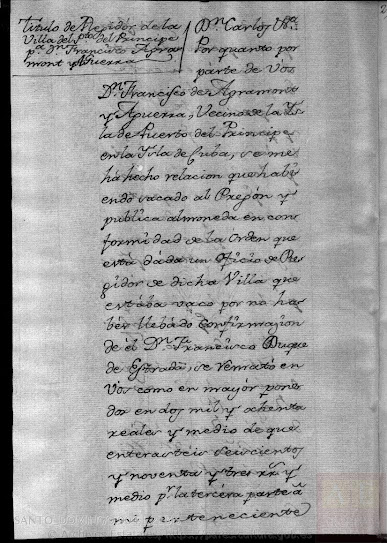 Titulo de Regidor de la
Villa del Pto del Principe
pa Dn Francisco Agra
mont y Aguerra
Dn Carlos &a
Por quanto por
parte de Vos
Dn Francisco de Agramont
y Aguerra, Vecino de la Vi
la de Puerto del Principe
en la Ysla de Cuba, se me
ha hecho relacion que habi
endo sacado al Pregón y
publica almoneda en con
formidad de la Orden que
está dada un Oficio de Re
gidor de dicha Villa que
estába vaco por no ha
bér llebádo Confirmazion
de él Dn Francisco Duque
de Estrada, se Remató en
Vos como en mayór pone
dor en dos mil y ochenta
reáles y medio de que
enterasteis seiscientos
y noventa y tres rs y
medio pr la tercéra parte á
mi perteneciente